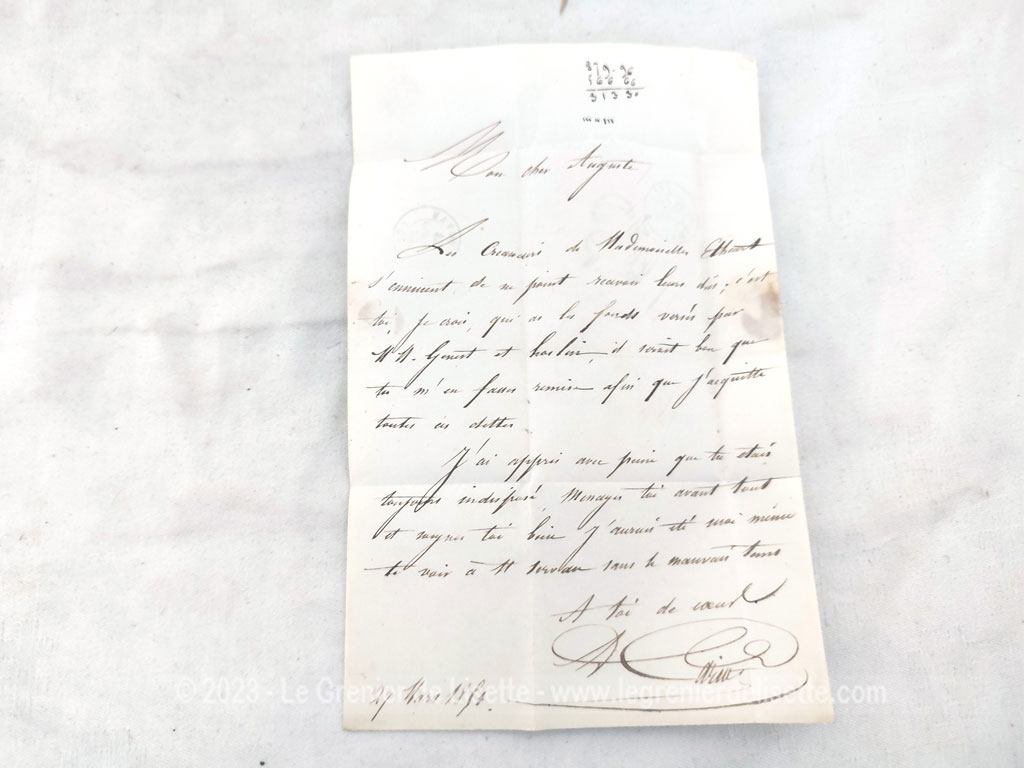 3133
Mon cher Auguste
Les Creanciers de Mademoiselle
s'ennuient de ne point recevoir leurs dûs, c'est
toi, je crois, qui as les fonds versés par
MM. Genest et il serait bon que
tu m'en fasses remise afin que j'acquitte
toutes ces dettes
J'ai appris avec peine que tu étais
toujours indisposé, Menages toi avant tout
et soignes toi bien J'aurais été moi même
te voir à St Servan sans le mauvais tems
A toi de coeur
27 Mars
© 2023 - Le Grenier de Lisette - www.legrenierdelisette.com